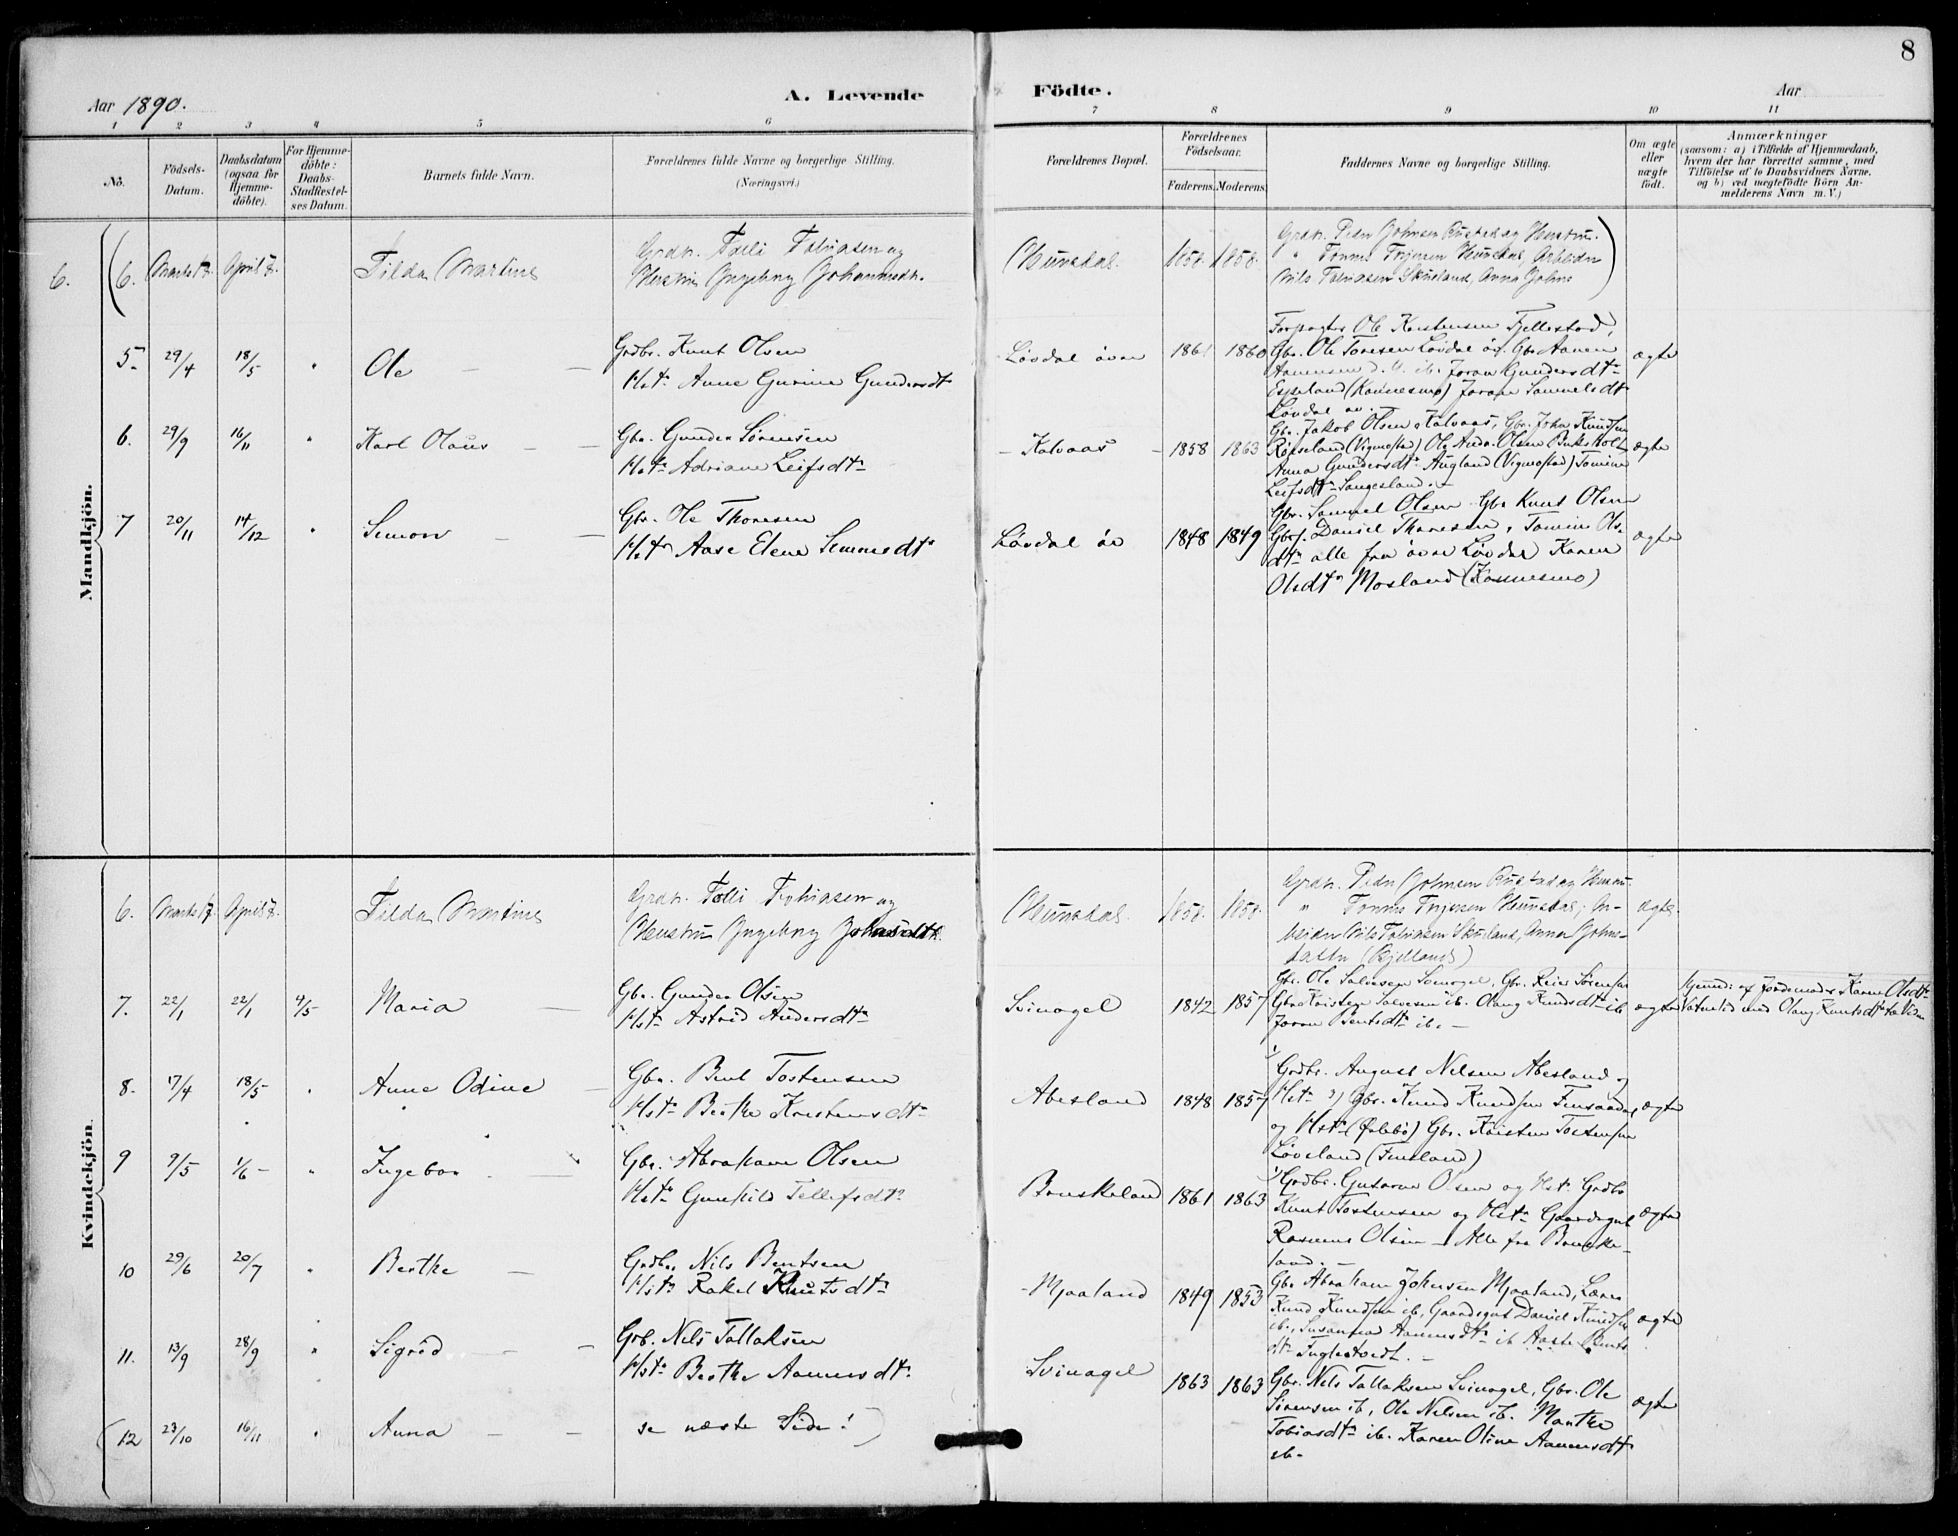 8
Aar 1890.
A. Levende
Födte.
Aar
1 2 3 4 5 6
7 8 9 10 11
No.
Födsels-
Datum.
Daabsdatum
(ogsaa for
Hjemme-
döbte).
For Hjemme-
döbte:
Daabs-
Stadfæstel-
ses Datum.
Barnets fulde Navn.
Forældrenes fulde Navne og borgerlige Stilling.
(Næringsvei.)
Forældrenes Bopæl.
Forældrenes
Födselsaar.
Faderens.
Moderens.
Faddernes Navne og borgerlige Stilling.
Om ægte
eller
uægte
födt.
Anmærkninger
(saasom: a) i Tilfælde af Hjemmedaab,
hvem der har forrettet samme, med
Tilföielse af to Daabsvidners Navne.
og b) ved uægtefödte Börn An-
melderens Navn m. V.)
Mandkjön.
6. (6. Marts 7. April 7. Tilda Martine
Grdr. Tolli Tobiasen og
Hustru Ingeborg
Hunsdal. 1858. 1858.
Grdr. Peder Johnsen Rustad og Hustru.
" Tønnes Hunsdal, Arbeider
Nils Tobiassen Skueland, Anna Johns )
5. 29/4 18/5 " Ole
Grdbr. Knut Olsen
Hst. Anne Gurine Gundersdt.
Løvdal øvre 1861 1860
Forpagter Ole Kristensen Fjellestad,
Gbr. Ole Toresen Løvdal øv. Gbr. Aanen
Aanensen ib. Joran Gundersdt.
Espeland (Konnesmo) Joran Samuelsdt
Løvdal øv. -
ægte
6. 29/9 16/11 " Karl Olaus
Gbr. Gunder Sørensen
Hst. Adriane Leifsdt.
- Kalvaas - 1858 1863
Gbr. Jakob Olsen Kalvaas, Gbr. John Knudsen
Røiseland (Vigmostad) Ole Andr. Olsen Birkeholt
Anna Gundersdt. Augland (Vigmostad) Tomine
Leifsdt. Laugesland. -
ægte
7 20/11 14/12 " Simon
Gbr. Ole Thoresen
Hst. Aase Elene Simonsdt.
Løvdal øv 1848 1849
Gbr. Samuel Olsen Gbr. Knut Olsen
Gbrs. Daniel Thoresen, Tomine Ols-
dt. alle fra øvre Løvdal Karen
Olsdt. Mosland (Konnesmo)
ægte
Kvindekjön.
6. Marts 7. April 7. Tilda Martine
Grdr. Tolli Tobiasen og
Hustru Ingeborg
Hunsdal. 1858. 1858.
Grdr. Peder Johnsen Rustad og Hustru.
" Tønnes Hunsdal, Ar-
beider Nils Tobiassen Skueland, Anna Johns-
datter (Bjelland)
ægte.
7. 22/1 22/1 4/5 Maria
Gbr. Gunder Olsen
Hst. Astrid Andersdt.
Svinagel 1842 1857
Gbr. Ole Salvesen Svinagel, Gbr. Reier Sørensen
Gbr. Kristen Salvesen ib. Olaug Knudsdt. ib
Joran Bentsdt. ib. -
ægte
hjemd: af Jordemoder Karen Olsdt.
Vatnelid med Olaug Knutsdt.
8. 17/4 18/5 " Anne Odine
Gbr. Bent Tostensen
Hst. Berthe Kristensdt.
Abesland 1848 1857
1) Grdbr. August Nilsen Abesland og
Hst. 2) Gbr. Knud Knudsen Finsaadal
og Hst. (Øslebø) Gbr. Kristen Tostensen
Løveland (Finsland)
ægte
9 9/5 1/6 - " Ingebor
Gbr. Abraham Olsen
Hst. Gunhild Tellefsdt.
Bruskeland 1861 1863
1) Grdbr. Gustava Olsen og Hst. Grdbr
Knut Tostensen og Hst. Gaardsgut
Rasmus Olsen - Alle fra Bruske-
land. -
ægte
10 29/6 20/7 " Berthe
Grdbr. Nils Bentsen
Hst. Rakel Knutsdt.
- Mjaaland 1849 1853
Gbr. Abraham Johnsen Mjaaland, Lærer
Knud Knudsen ib, Gaardsgut Daniel Knudsen
ib., Susanna Aanensdt. ib Aaste Bents-
dt. Fuglestvedt. -
ægte
11. 13/9 28/9 " Sigrid
Grb. Nils Tallaksen
Hst. Berthe Aanensdt.
Svinagel 1863 1863
Gbr. Nils Tallaksen Svinagel, Gbr. Ole
Sørensen ib, Ole Nilsen ib. Marthe
Tobiasdt. ib. Karen Oline Aanensdt
ib.
ægte
(12 23/10 16/11 " Anna - - se næste Side! )